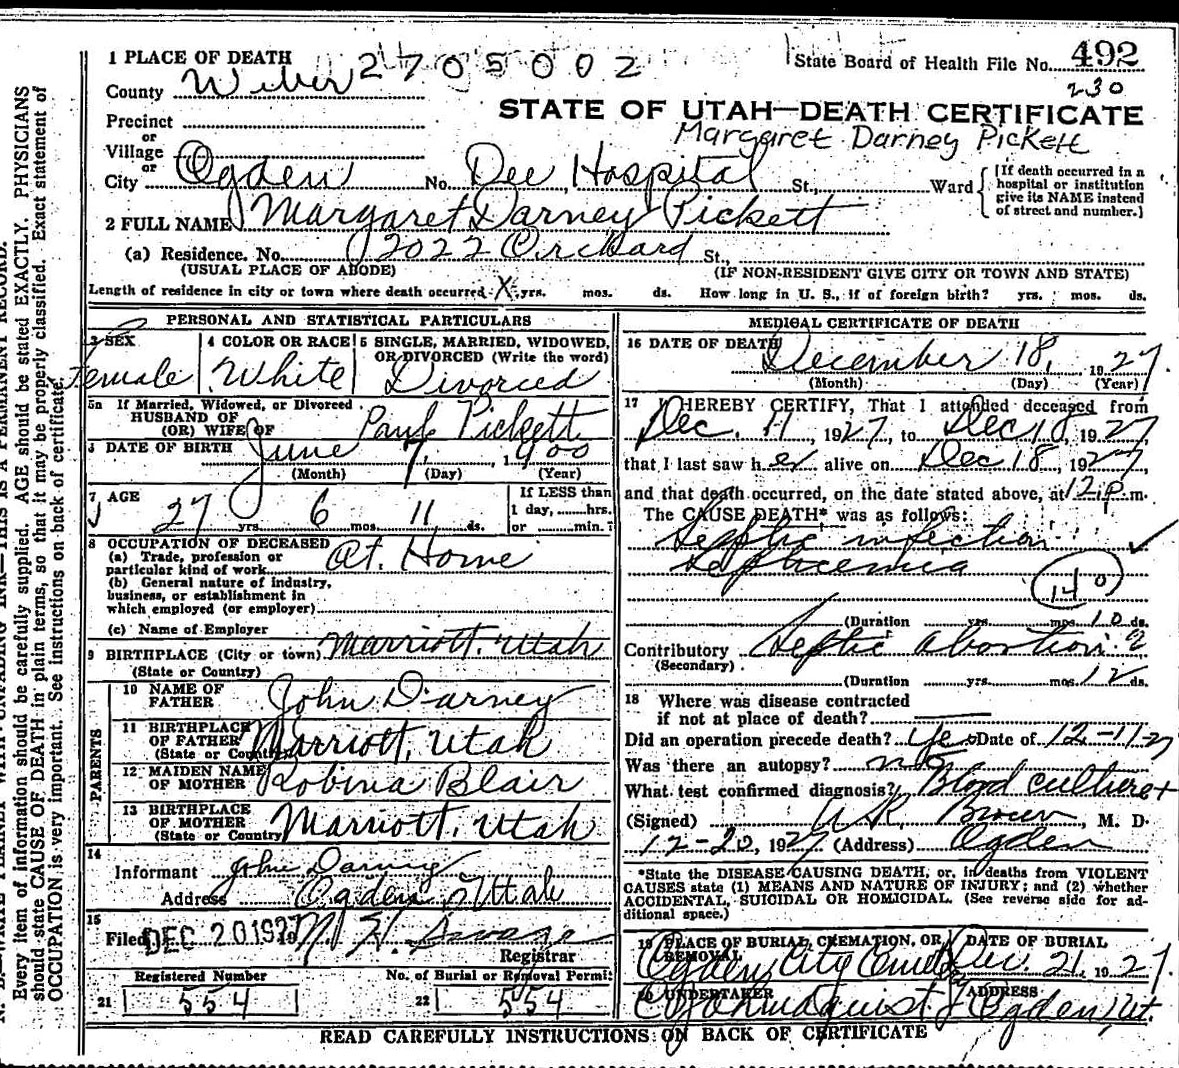 1 PLACE OF DEATH 2705002 State Board of Health File No. 492
County Weber 230
STATE OF UTAH—DEATH CERTIFICATE
Precinct
Margaret Darney Pickett
or
Village
or
City Ogden No. Dee Hospital St., Ward
[If death occurred in a hospital or institution give its NAME instead of street and number.]
2 FULL NAME Margaret Darney Pickett
(a) Residence. No. 2022 Orchard St.,
(USUAL PLACE OF ABODE) (IF NON-RESIDENT GIVE CITY OR TOWN AND STATE)
Length of residence in city or town where death occurred X yrs. mos. ds. How long in U. S., if of foreign birth? yrs. mos. ds.
PERSONAL AND STATISTICAL PARTICULARS
3 SEX
Female
4 COLOR OR RACE
White
5 SINGLE, MARRIED, WIDOWED,
OR DIVORCED (Write the word)
Divorced
5a If Married, Widowed, or Divorced
HUSBAND OF
(OR) WIFE OF Paul Pickett
DATE OF BIRTH June 7, 1900
(Month) (Day) (Year)
7 AGE
27 yrs. 6 mos. 11 ds.
If LESS than
1 day, hrs.
or min.
8 OCCUPATION OF DECEASED
(a) Trade, profession or
particular kind of work At. Home
(b) General nature of industry,
business, or establishment in
which employed (or employer)
(c) Name of Employer
9 BIRTHPLACE (City or town) Marriott, Utah
(State or Country)
PARENTS
10 NAME OF
FATHER John Darney
11 BIRTHPLACE
OF FATHER Marriott, Utah
(State or Country)
12 MAIDEN NAME
OF MOTHER Robina Blair
13 BIRTHPLACE
OF MOTHER Marriott, Utah
(State or Country)
14
Informant John Darney
Address Ogden Utah
15
Filed DEC 20 1927 19
Registrar
Registered Number No. of Burial or Removal Permit
21 554 22 554
MEDICAL CERTIFICATE OF DEATH
16 DATE OF DEATH December 18, 1927
(Month) (Day) (Year)
17 I HEREBY CERTIFY, That I attended deceased from
Dec. 11 1927, to Dec 18, 1927,
that I last saw her alive on Dec 18, 1927,
and that death occurred, on the date stated above, at 12 p m.
The CAUSE DEATH* was as follows:
Septic infection
Septicemia
140
(Duration yrs. mos. 10 ds.
Contributory Septic abortion ?
(Secondary)
(Duration yrs. mos. 12 ds.
18 Where was disease contracted
if not at place of death?
Did an operation precede death? Yes Date of 12-11-27
Was there an autopsy? no
What test confirmed diagnosis? Blood culture +
(Signed) Brown, M. D.
12-20, 1927 (Address) Ogden
*State the DISEASE CAUSING DEATH, or, in deaths from VIOLENT
CAUSES state (1) MEANS AND NATURE OF INJURY; and (2) whether
ACCIDENTAL, SUICIDAL OR HOMICIDAL. (See reverse side for ad-
ditional space.)
19 PLACE OF BURIAL, CREMATION, OR
REMOVAL
Ogden City Cemetery
DATE OF BURIAL
Dec. 21, 1927.
20 UNDERTAKER
ADDRESS
Ogden, Ut.
READ CAREFULLY INSTRUCTIONS ON BACK OF CERTIFICATE
Every item of information should be carefully supplied. AGE should be stated EXACTLY. PHYSICIANS
should state CAUSE OF DEATH in plain terms, so that it may be properly classified. Exact statement of
OCCUPATION is very important. See instructions on back of certificate.